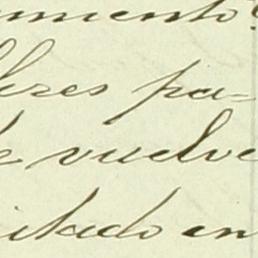 miento
leres pa-
vuelve
itado en